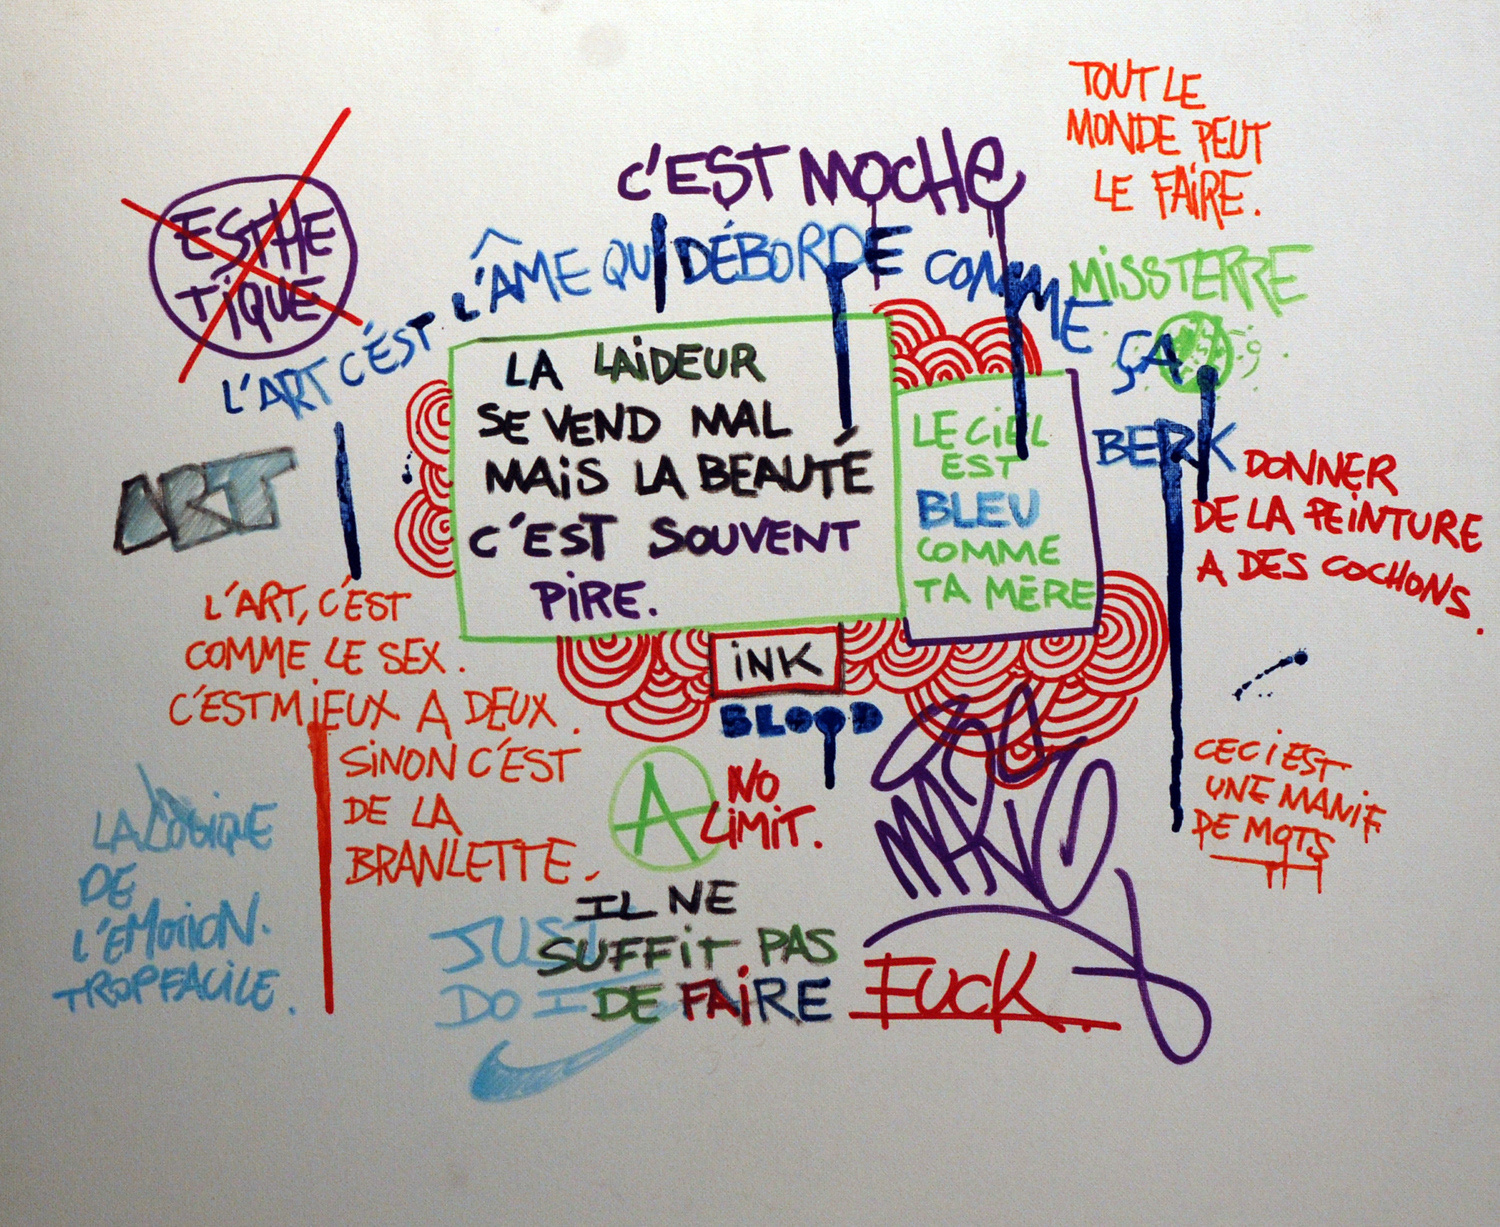 TOUT LE
MONDE PEUT
LE FAIRE.
C'EST MOCHE
ESTHE
TIQUE
L'ART C'EST L'ÂME QUI DÉBORDE COMME ÇA
MISSTERRE
BERK
ART
LA LAIDEUR
SE VEND MAL
MAIS LA BEAUTÉ
C'EST SOUVENT
PIRE.
LE CIEL
EST
BLEU
COMME
TA MÈRE
DONNER
DE LA PEINTURE
A DES COCHONS.
L'ART, C'EST
COMME LE SEX.
C'EST MIEUX A DEUX.
SINON C'EST
DE LA
BRANLETTE.
INK
BLOOD
A
NO
LIMIT.
CECI EST
UNE MANIF
DE MOTS
LA LOGIQUE
DE
L'EMOTION.
TROP FACILE.
JUST
DO IT
IL NE
SUFFIT PAS
DE FAIRE
FUCK